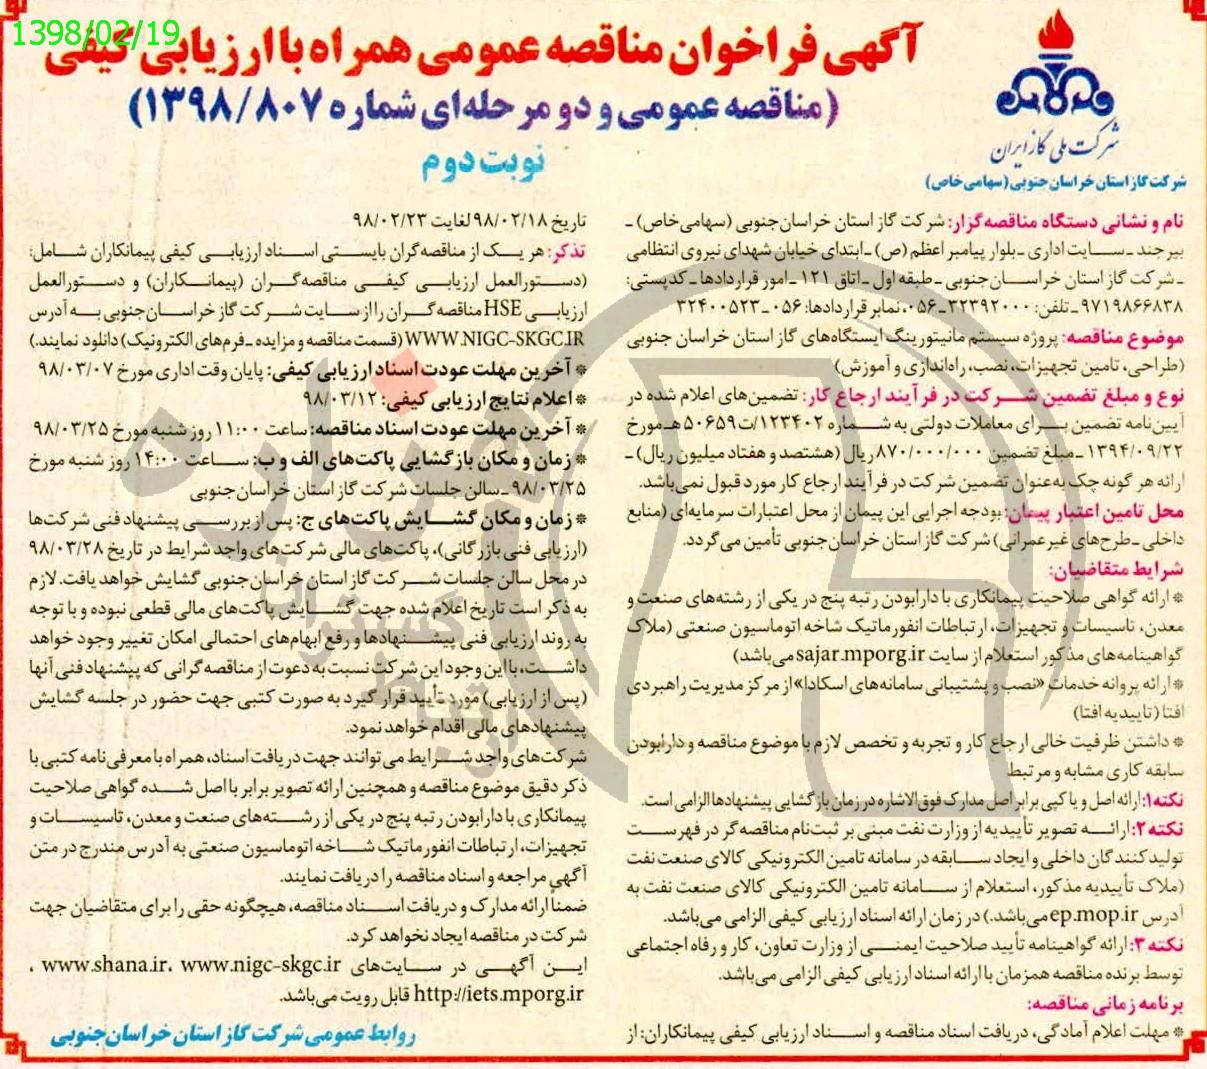 1398/02/19
آگهی فراخوان مناقصه عمومی همراه با ارزیابی کیفی
(مناقصه عمومی و دو مرحله‌ای شماره ۱۳۹۸/۸۰۷)
نوبت دوم
شرکت ملی گاز ایران
شرکت گاز استان خراسان جنوبی (سهامی خاص)
نام و نشانی دستگاه مناقصه‌گزار: شرکت گاز استان خراسان‌جنوبی (سهامی‌خاص) ـ
بیرجند ـ سـایت اداری ـ بلوار پیامبر اعظم (ص) ـ ابتدای خیابان شهدای نیروی انتظامی
ـ شرکت گاز استان خراسـان‌جنوبی ـ طبقه اول ـ اتاق ۱۲۱ ـ امور قراردادها ـ کدپستی:
۹۷۱۹۸۶۶۸۳۸ ـ تلفن: ۳۲۳۹۲۰۰۰ ـ ۰۵۶، نمابر قراردادها: ۰۵۶ ـ ۳۲۴۰۰۵۲۳
موضوع مناقصه: پروژه سیستم مانیتورینگ ایستگاه‌های گاز استان خراسان جنوبی
(طراحی، تامین تجهیزات، نصب، راه‌اندازی و آموزش)
نوع و مبلغ تضمین شـرکت در فرآیند ارجاع کار: تضمین‌های اعلام شده در
آیین‌نامه تضمین بـرای معاملات دولتی به شـماره ۱۲۳۴۰۲/ت۵۰۶۵۹هـ مورخ
۱۳۹۴/۰۹/۲۲ ـ مبلغ تضمین ۸۷۰/۰۰۰/۰۰۰ ریال (هشتصد و هفتاد میلیون ریال) ـ
ارائه هر گونه چک به‌عنوان تضمین شرکت در فرآیند ارجاع کار مورد قبول نمی‌باشد.
محل تامین اعتبار پیمان: بودجه اجرایی این پیمان از محل اعتبارات سرمایه‌ای (منابع
داخلی ـ طرح‌های غیرعمرانی) شرکت گاز استان خراسان‌جنوبی تأمین می‌گردد.
شرایط متقاضیان:
* ارائه گواهی صلاحیت پیمانکاری با دارابودن رتبه پنج در یکی از رشته‌های صنعت و
معدن، تاسیسات و تجهیزات، ارتباطات انفورماتیک شاخه اتوماسیون صنعتی (ملاک
گواهینامه‌های مذکور استعلام از سایت sajar.mporg.ir می‌باشد)
* ارائه پروانه خدمات «نصب و پشتیبانی سامانه‌های اسکادا» از مرکز مدیریت راهبردی
افتا (تاییدیه افتا)
* داشتن ظرفیت خالی ارجاع کار و تجربه و تخصص لازم با موضوع مناقصه و دارابودن
سابقه کاری مشابه و مرتبط
نکته۱: ارائه اصل و یا کپی برابر اصل مدارک فوق‌الاشاره در زمان بازگشایی پیشنهادها الزامی است.
نکته۲: ارائـه تصویر تأییدیه از وزارت نفت مبنی بر ثبت‌نام مناقصه‌گر در فهرسـت
تولیدکنندگان داخلی و ایجاد سـابقه در سامانه تامین الکترونیکی کالای صنعت نفت
(ملاک تأییدیه مذکور، استعلام از سـامانه تامین الکترونیکی کالای صنعت نفت به
آدرس ep.mop.ir می‌باشد.) در زمان ارائه اسناد ارزیابی کیفی الزامی می‌باشد.
نکته۳: ارائه گواهینامه تأیید صلاحیت ایمنـی از وزارت تعاون، کار و رفاه اجتماعی
توسط برنده مناقصه همزمان با ارائه اسناد ارزیابی کیفی الزامی می‌باشد.
برنامه زمانی مناقصه:
* مهلت اعلام آمادگی، دریافت اسناد مناقصه و اسـناد ارزیابی کیفی پیمانکاران: از
تاریخ ۹۸/۰۲/۱۸ لغایت ۹۸/۰۲/۲۳
تذکر: هر یـک از مناقصه‌گران بایسـتی اسـناد ارزیابـی کیفی پیمانکاران شـامل:
(دسـتورالعمل ارزیابـی کیفـی مناقصه‌گـران (پیمانـکاران) و دسـتورالعمل
ارزیابـی HSE مناقصه‌گـران را از سـایت شـرکت گاز خراسـان‌جنوبی بـه آدرس
WWW.NIGC-SKGC.IR (قسمت مناقصه و مزایده ـ فرم‌های الکترونیک) دانلود نمایند.)
* آخرین مهلت عودت اسناد ارزیابی کیفی: پایان وقت اداری مورخ ۹۸/۰۳/۰۷
* اعلام نتایج ارزیابی کیفی: ۹۸/۰۳/۱۲
* آخرین مهلت عودت اسناد مناقصه: ساعت ۱۱:۰۰ روز شنبه مورخ ۹۸/۰۳/۲۵
* زمان و مکان بازگشایی پاکت‌های الف و ب: سـاعت ۱۴:۰۰ روز شنبه مورخ
۹۸/۰۳/۲۵ ـ سالن جلسات شرکت گاز استان خراسان‌جنوبی
* زمان و مکان گشـایش پاکت‌های ج: پس از بررسـی پیشنهاد فنی شرکت‌ها
(ارزیابی فنی بازرگانی)، پاکت‌های مالی شرکت‌های واجد شرایط در تاریخ ۹۸/۰۳/۲۸
در محل سالن جلسات شـرکت گاز استان خراسان‌جنوبی گشایش خواهد یافت. لازم
به ذکر است تاریخ اعلام شده جهت گشـایش پاکت‌های مالی قطعی نبوده و با توجه
به روند ارزیابی فنی پیشـنهادها و رفع ابهام‌های احتمالی امکان تغییر وجود خواهد
داشـت، با این وجود این شرکت نسبت به دعوت از مناقصه‌گرانی که پیشنهاد فنی آنها
(پس از ارزیابی) مورد تأیید قرار گیرد به صورت کتبی جهت حضور در جلسه گشایش
پیشنهادهای مالی اقدام خواهد نمود.
شرکت‌های واجد شـرایط می‌توانند جهت دریافت اسناد، همراه با معرفی‌نامه کتبی با
ذکر دقیق موضوع مناقصه و همچنین ارائه تصویر برابر با اصل شـده گواهی صلاحیت
پیمانکاری با دارابودن رتبه پنج در یکی از رشـته‌های صنعت و معدن، تاسیسـات و
تجهیزات، ارتباطات انفورماتیک شـاخه اتوماسیون صنعتی به آدرس مندرج در متن
آگهی مراجعه و اسناد مناقصه را دریافت نمایند.
ضمنا ارائه مدارک و دریافت اسـناد مناقصه، هیچگونه حقی را برای متقاضیان جهت
شرکت در مناقصه ایجاد نخواهد کرد.
ایـن آگهـی در سـایت‌های www.shana.ir، www.nigc-skgc.ir ،
http://iets.mporg.ir قابل رویت می‌باشد.
روابط عمومی شرکت گاز استان خراسان‌جنوبی